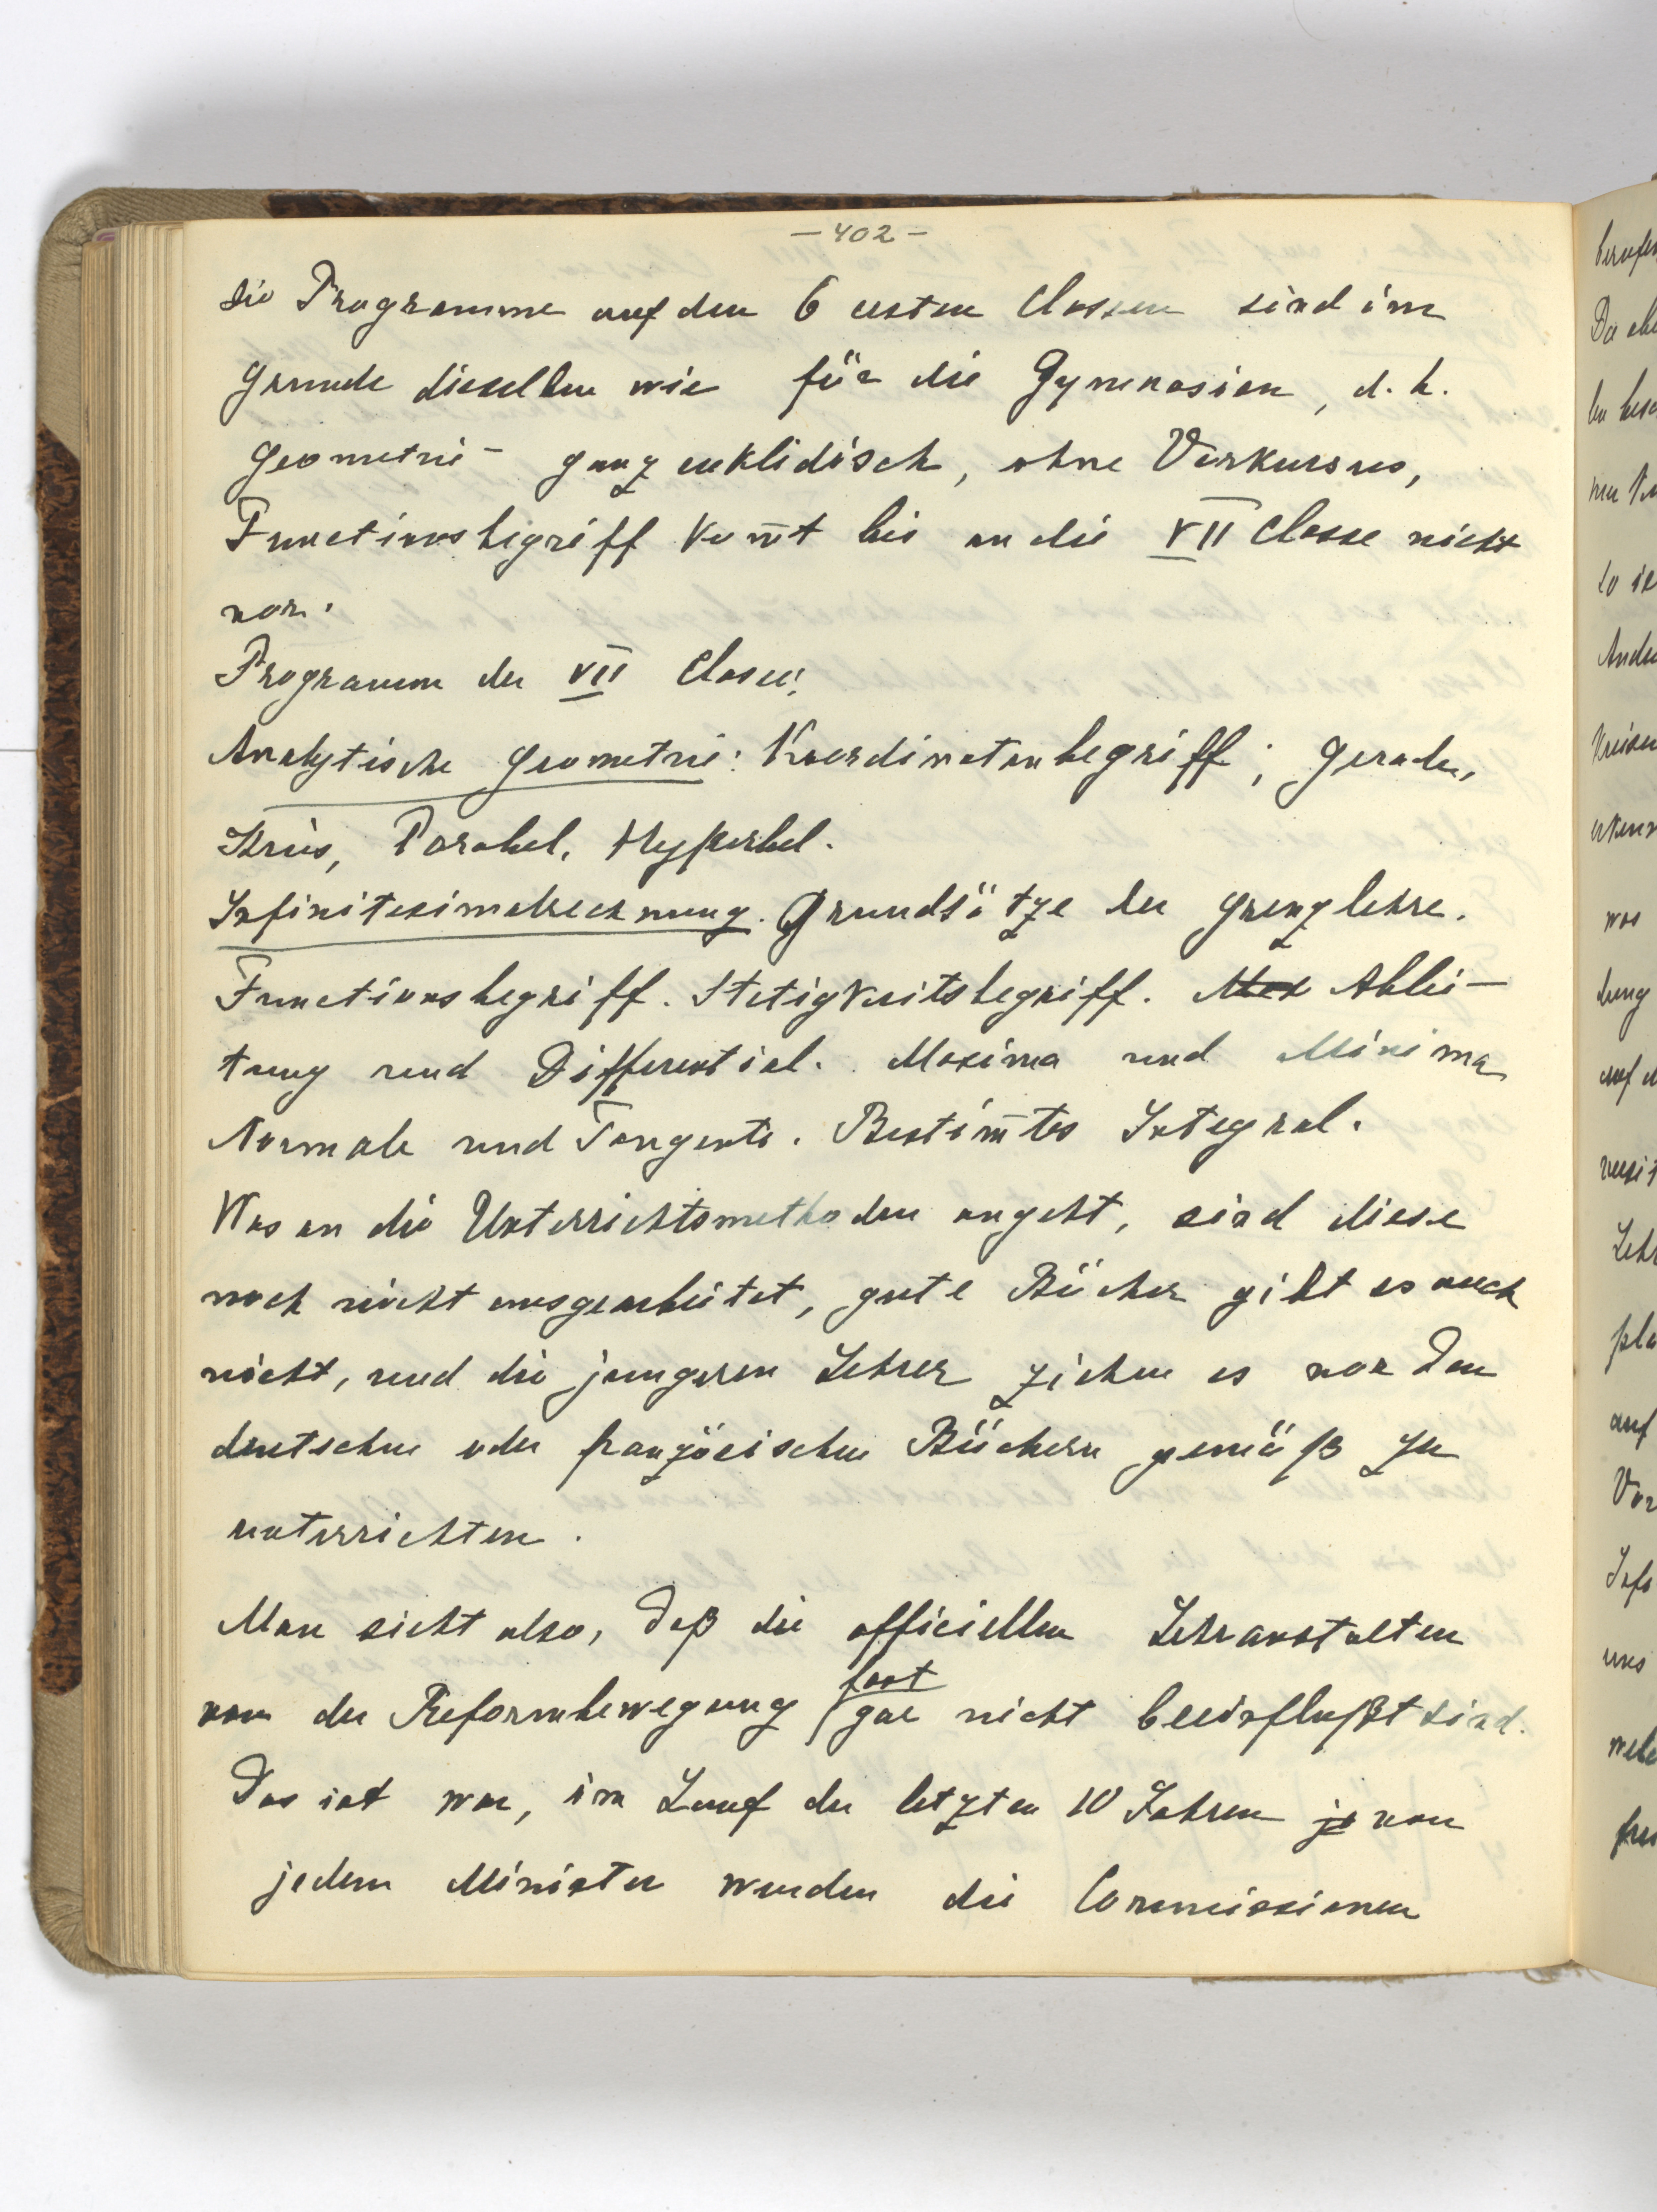 — 402 —
die Programme auf den 6 ersten Classen sind im
Grunde dieselben wie für die Gymnasien, d. h.
Geometrie – ganz euklidisch, ohne Vorkursus,
Functionsbegriff kom̄t bis an die VII Classe nicht
vor.
Programm der VII Classe:
Analytische Geometrie: Koordinatenbegriff; Gerade,
Kreis, Parabel, Hyperbel.
Infinitesimalrechnung. Grundsätze der Grenzlehre.
Functionsbegriff. Stetigkeitsbegriff. Max Ablei-
tung und Differential. Maxima und Minima
Normale und Tangente. Bestim̄tes Integral.
Was an die Unterrichtsmethoden angeht, sind diese
noch nicht ausgearbeitet, gute Bücher gibt es auch
nicht, und die jungeren Lehrer ziehen es vor den
deutschen oder französischen Büchern gemäß zu
unterrichten.
Man sieht also, daß die officiellen Lehranstalten
von der Reformbewegung fast gar nicht beeinflußt sind.
Das ist war, im Lauf der letzten 10 Jahren je von
jedem Minister wurden die Commissionen